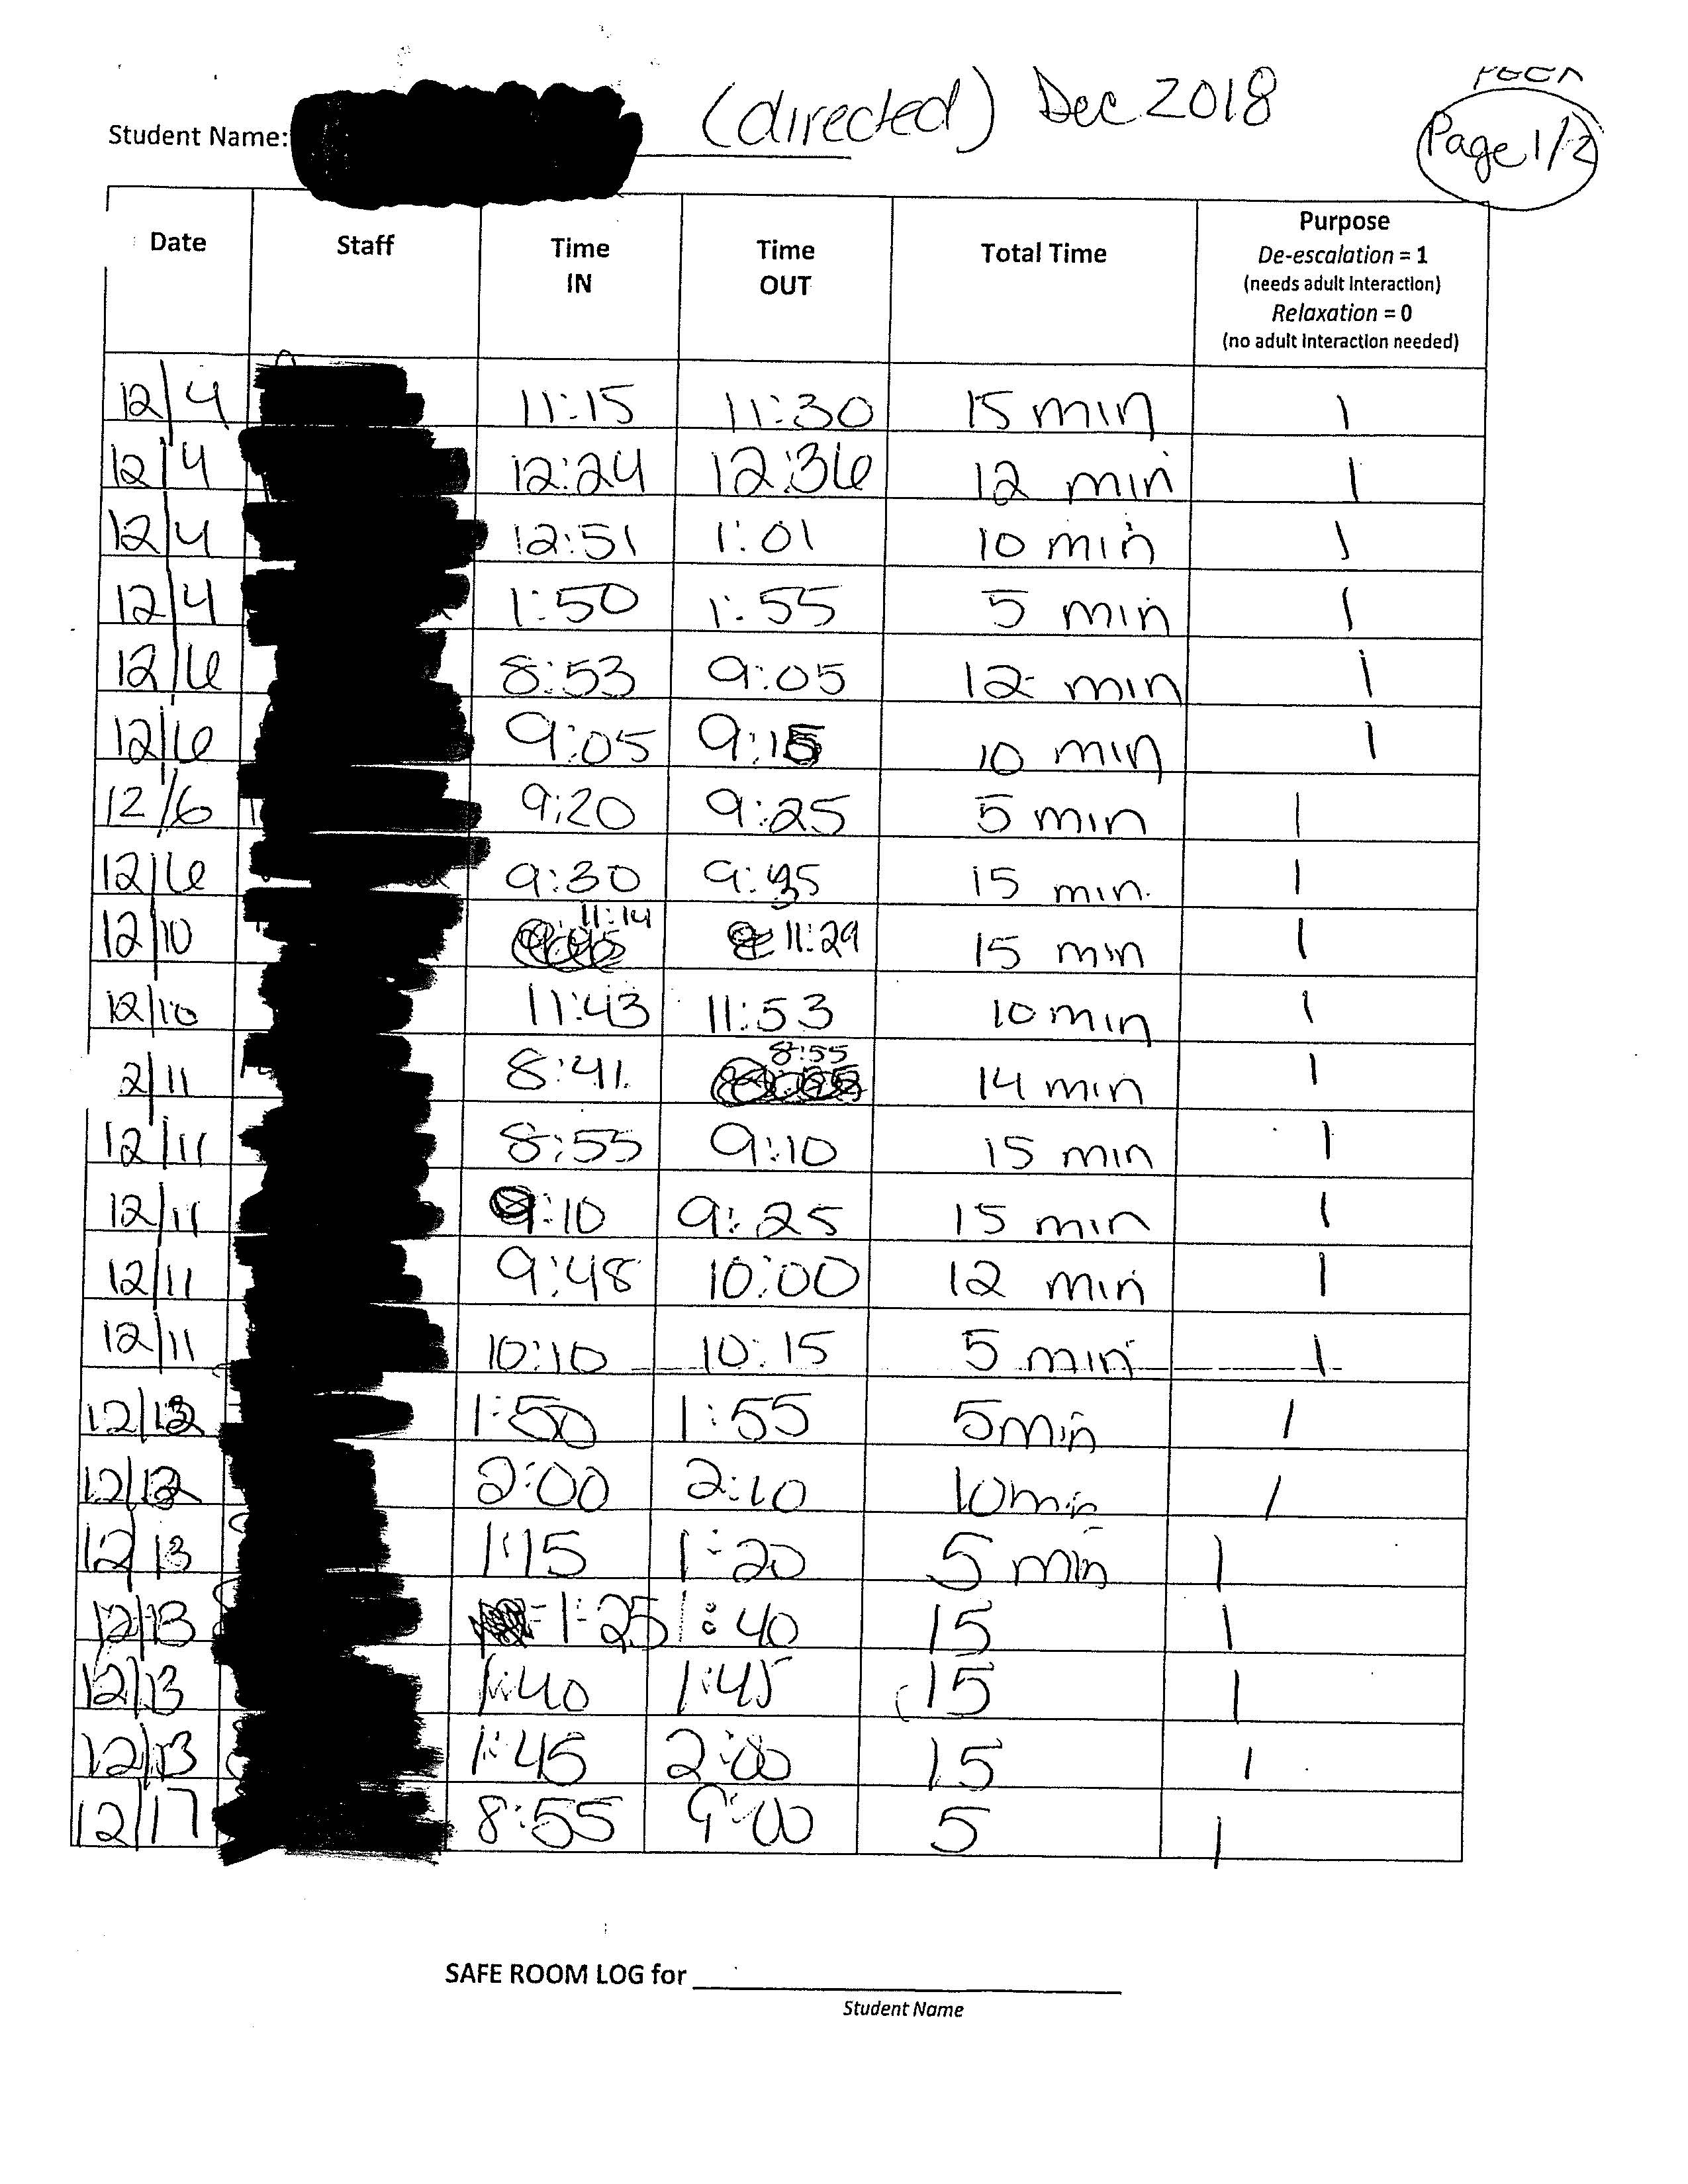 (directed) Dec 2018
Page 1/2
Student Name:
Date Staff Time IN Time OUT Total Time Purpose
De-escalation = 1
(needs adult interaction)
Relaxation = 0
(no adult interaction needed)
12/4 11:15 11:30 15 min 1
12/4 12:24 12:36 12 min 1
12/4 12:51 1:01 10 min 1
12/4 1:50 1:55 5 min 1
12/6 8:53 9:05 12 min 1
12/6 9:05 9:15 10 min 1
12/6 9:20 9:25 5 min 1
12/6 9:30 15 min. 1
12/10 11:14 11:29 15 min 1
12/10 11:43 11:53 10 min 1
2/11 8:41 8:55 14 min 1
12/11 8:55 9:10 15 min 1
12/11 9:10 9:25 15 min 1
12/11 9:48 10:00 12 min 1
12/11 10:10 10:15 5 min 1
1:50 1:55 5 min 1
2:00 2:10 10 min 1
12/13 1:15 1:20 5 min 1
12/13 1:25 1:40 15 1
12/13 1:40 1:45 15 1
12/13 1:45 2:00 15 1
12/17 8:55 9:00 5 1
SAFE ROOM LOG for
Student Name